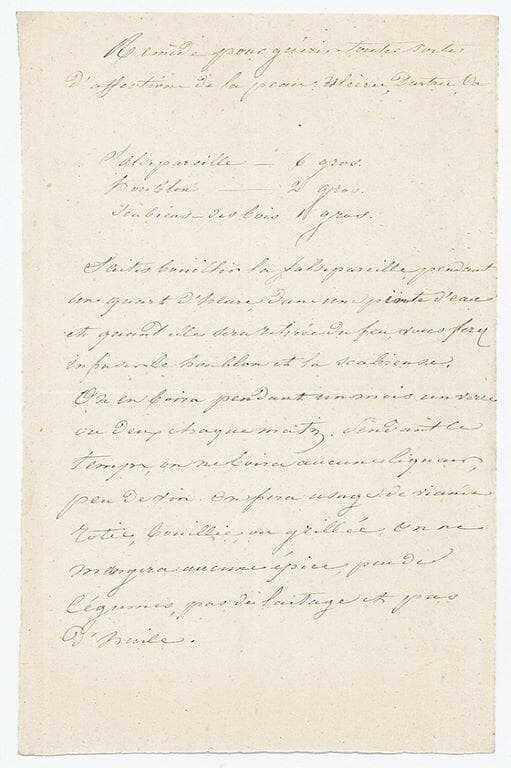 Remède pour guérir toutes sortes
d'affections de la peau, Ulcères, Dartres, &a
Salsepareille — 6 gros.
houblon — 2 gros.
Scabieuse-des bois 1 gros.
Faites bouillir la salsepareille pendant
un quart d'heure, dans une pinte d'eau
et quand elle sera retirée du feu, vous ferez
infuser le houblon et la scabieuse.
On en boira pendant un mois un verre
ou deux chaque matin. Pendant ce
temps, on ne boira aucune liqueur,
peu de vin. on fera usage de viande
rotie, bouillie, ou grillée. on ne
mangera aucune épice, peu de
légumes, pas de laitage et pas
d'huile.